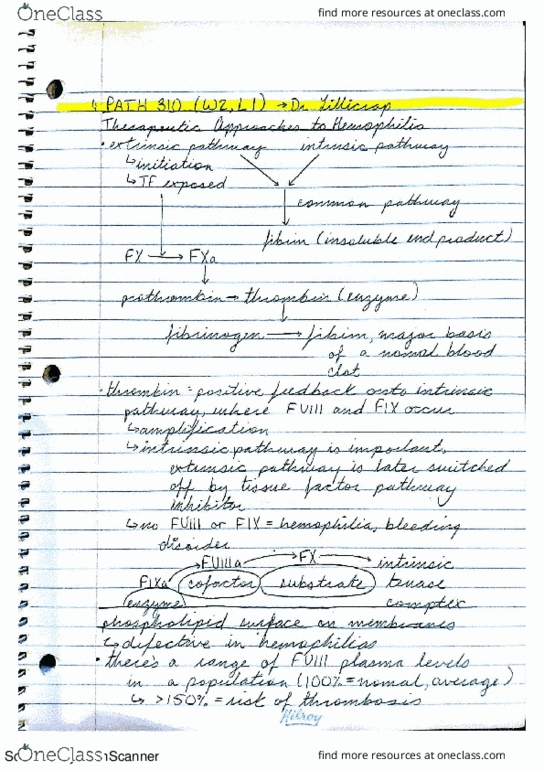 OneClass
find more resources at oneclass.com
↳ PATH 310 (W2, L1) → Dr. Lillicrap
Therapeutic Approaches to Hemophilia
• extrinsic pathway intrinsic pathway
↳ initiation
↳ TF exposed
common pathway
fibrin (insoluble end product)
FX → FXa
prothrombin → thrombin (enzyme)
fibrinogen → fibrin, major basis
of a normal blood
clot
• thrombin = positive feedback onto intrinsic
pathway, where FVIII and FIX occur
↳ amplification
↳ intrinsic pathway is important,
extrinsic pathway is later switched
off by tissue factor pathway
inhibitor
↳ no FVIII or FIX = hemophilia, bleeding
disorder
→ FVIIIa → FX → intrinsic
FIXa cofactor substrate tenase
enzyme complex
phospholipid surface on membranes
↳ defective in hemophilias
• there's a range of FVIII plasma levels
in a population (100% = normal, average)
↳ >150% = risk of thrombosis
Hilroy
OneClass
Scanner
find more resources at oneclass.com